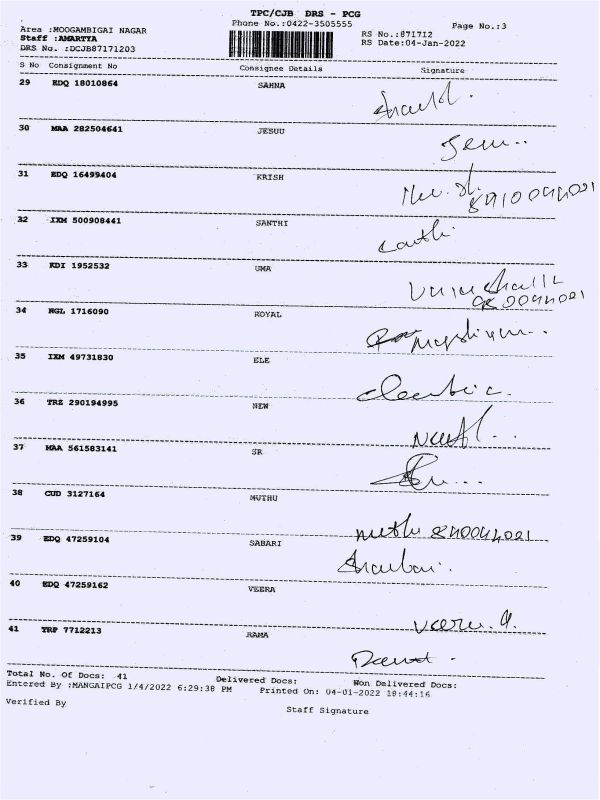 TPC/CJB DRS - PCG
Area :MOOGAMBIGAI NAGAR Phone No.:0422-3505555 Page No.:3
Staff :AMARTYA RS No.:871712
DRS No. :DCJB87171203 RS Date:04-Jan-2022
S No Consignment No Consignee Details Signature
29 EDQ 18010864 SAHNA
30 MAA 282504641 JESUU
31 EDQ 16499404 KRISH
32 IXM 500908441 SANTHI
33 KDI 1952532 UMA
34 NGL 1716090 ROYAL
35 IXM 49731830 ELE
36 TRZ 290194995 NEW
37 MAA 561583141 SR
38 CUD 3127164 MUTHU
39 EDQ 47259104 SABARI
40 EDQ 47259162 VEERA
41 TRP 7712213 RAMA
Total No. Of Docs: 41 Delivered Docs: Non Delivered Docs:
Entered By :MANGAIPCG 1/4/2022 6:29:38 PM Printed On: 04-01-2022 18:44:16
Verified By Staff Signature